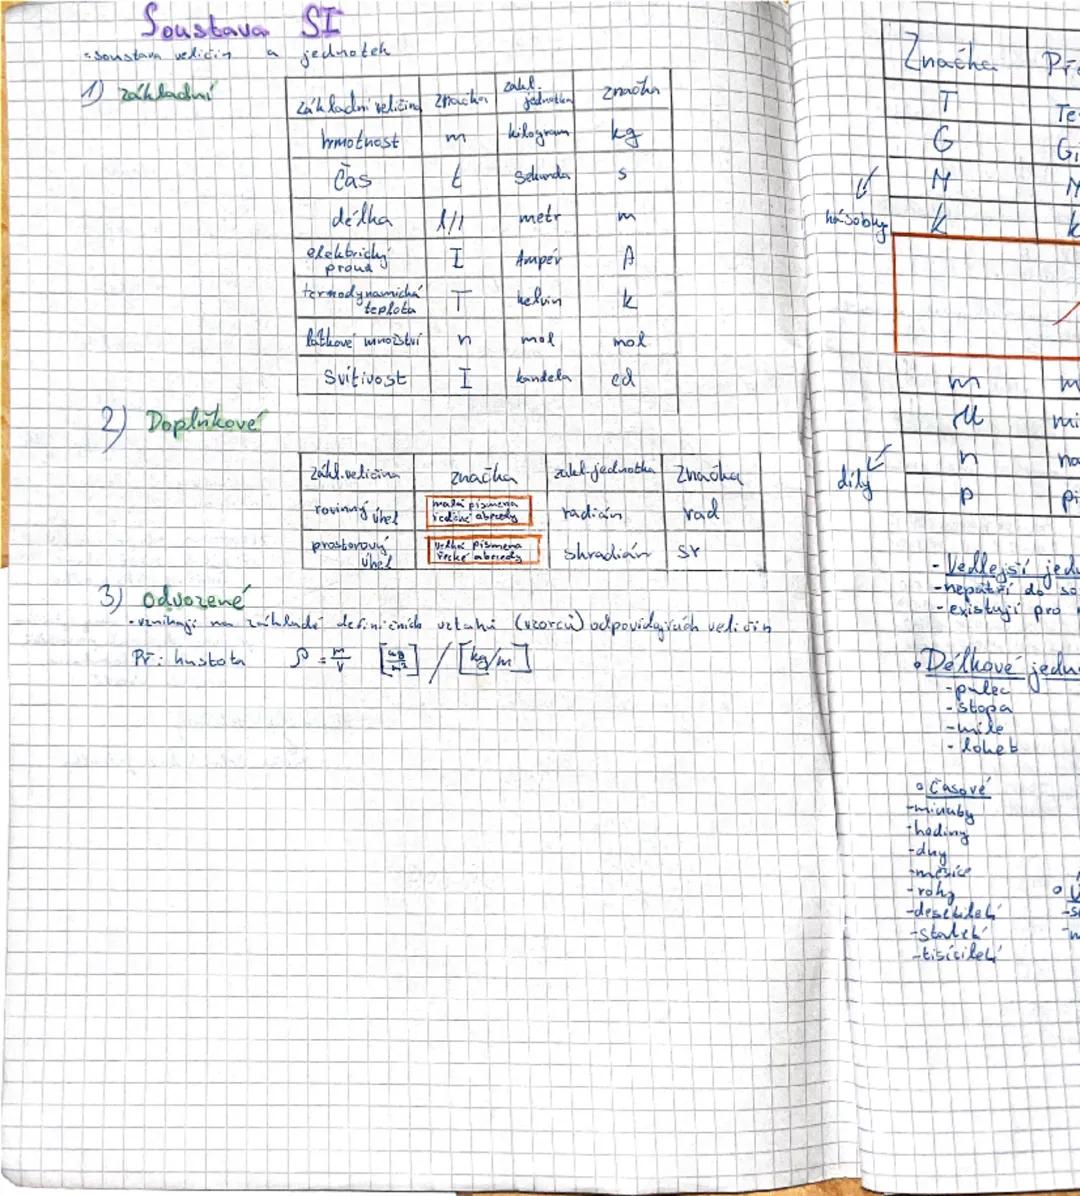 Soustava SI
- soustava veličin a jednotek
1) základní
základní veličina značka zákl. jednotka značka
hmotnost m kilogram kg
čas t sekunda s
délka l/l metr m
elektrický proud I Ampér A
termodynamická teplota T kelvin k
látkové množství n mol mol
Svítivost I kandela cd
2) Doplňkové
zákl. veličina značka zákl. jednotka značka
rovinný úhel malá písmena řecké abecedy radián rad
prostorový úhel velká písmena řecké abecedy sr
3) odvozené
- vznikají na základě definičních vztahů (vzorců) odpovídajících veličin
Př: hustota ρ = m/V / [kg/m]
Značka
T
G
M
násobky k
m
μ
n
díly p
- Vedlejší
- nepatří do
- existují pro
• Délkové
- palec
- stopa
- míle
- loket
• Časové
- minuty
- hodiny
- dny
- měsíce
- roky
- desetiletí
- století
- tisíciletí